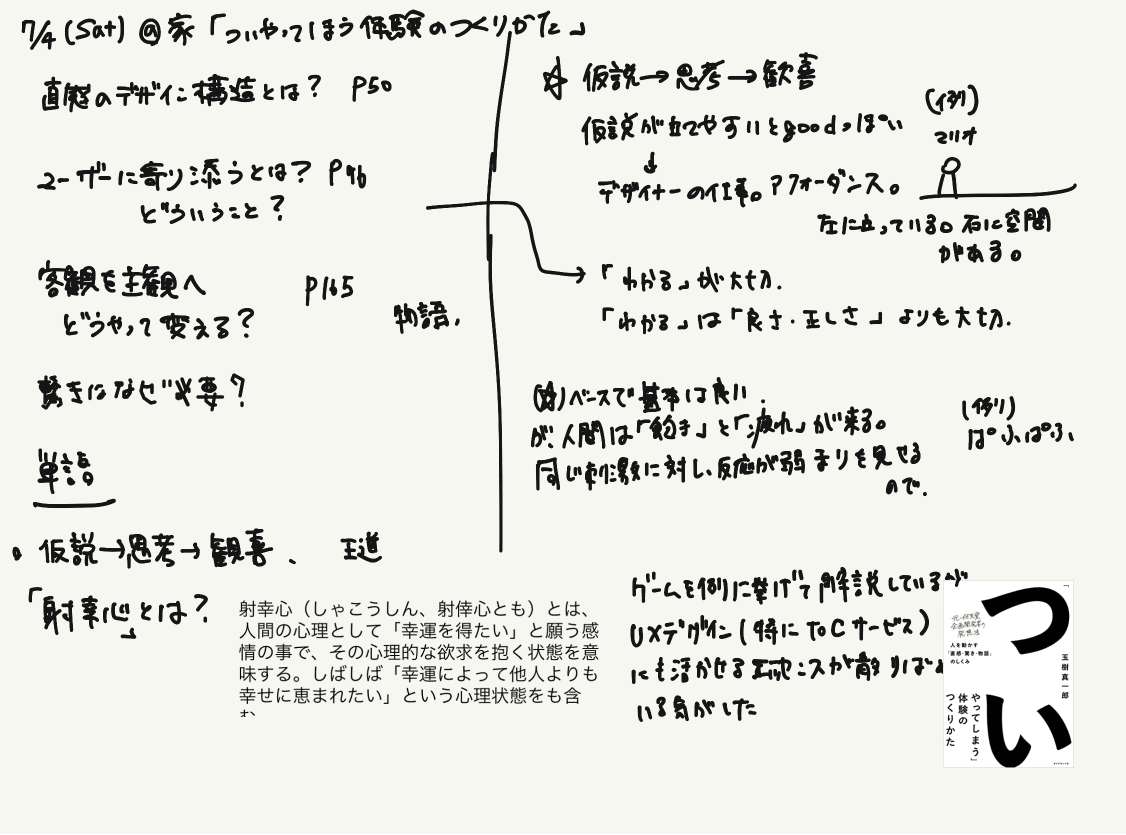 7/4 (Sat) @家 「ついやってしまう体験のつくりかた」
直感のデザイン構造とは? P50
ユーザーに寄り添うとは? P46
どういうこと?
客観を主観へ P165
どうやって変える?
物語.
驚きはなぜ必要?
単語
仮説→思考→歓喜、 王道
「射幸心」とは?
射幸心（しゃこうしん、射倖心とも）とは、
人間の心理として「幸運を得たい」と願う感
情の事で、その心理的な欲求を抱く状態を意
味する。しばしば「幸運によって他人よりも
幸せに恵まれたい」という心理状態をも含
む
☆ 仮説→思考→歓喜
仮説が立てやすいとgoodっぽい
↓
デザイナーの仕事。アフォーダンス。
(例)
マリオ
左に立っている。右に空間
がある。
「わかる」が大切.
「わかる」は「良さ・正しさ」よりも大切.
(☆)ベースで基本は良い.
が、人間は「飽き」と「疲れ」が来る。
同じ刺激に対し、反応が弱まりを見せる
ので.
(例)
ぱふぱふ、
ゲームを例に挙げて解説しているが
UXデザイン(特にtoCサービス)
にも活かせるエッセンスが散りばめ
いる気がした
「つい
やってしまう」
体験の
つくりかた
元・任天堂
企画開発者の
発想法
人を動かす
「直感・驚き・物語」
のしくみ
玉樹真一郎